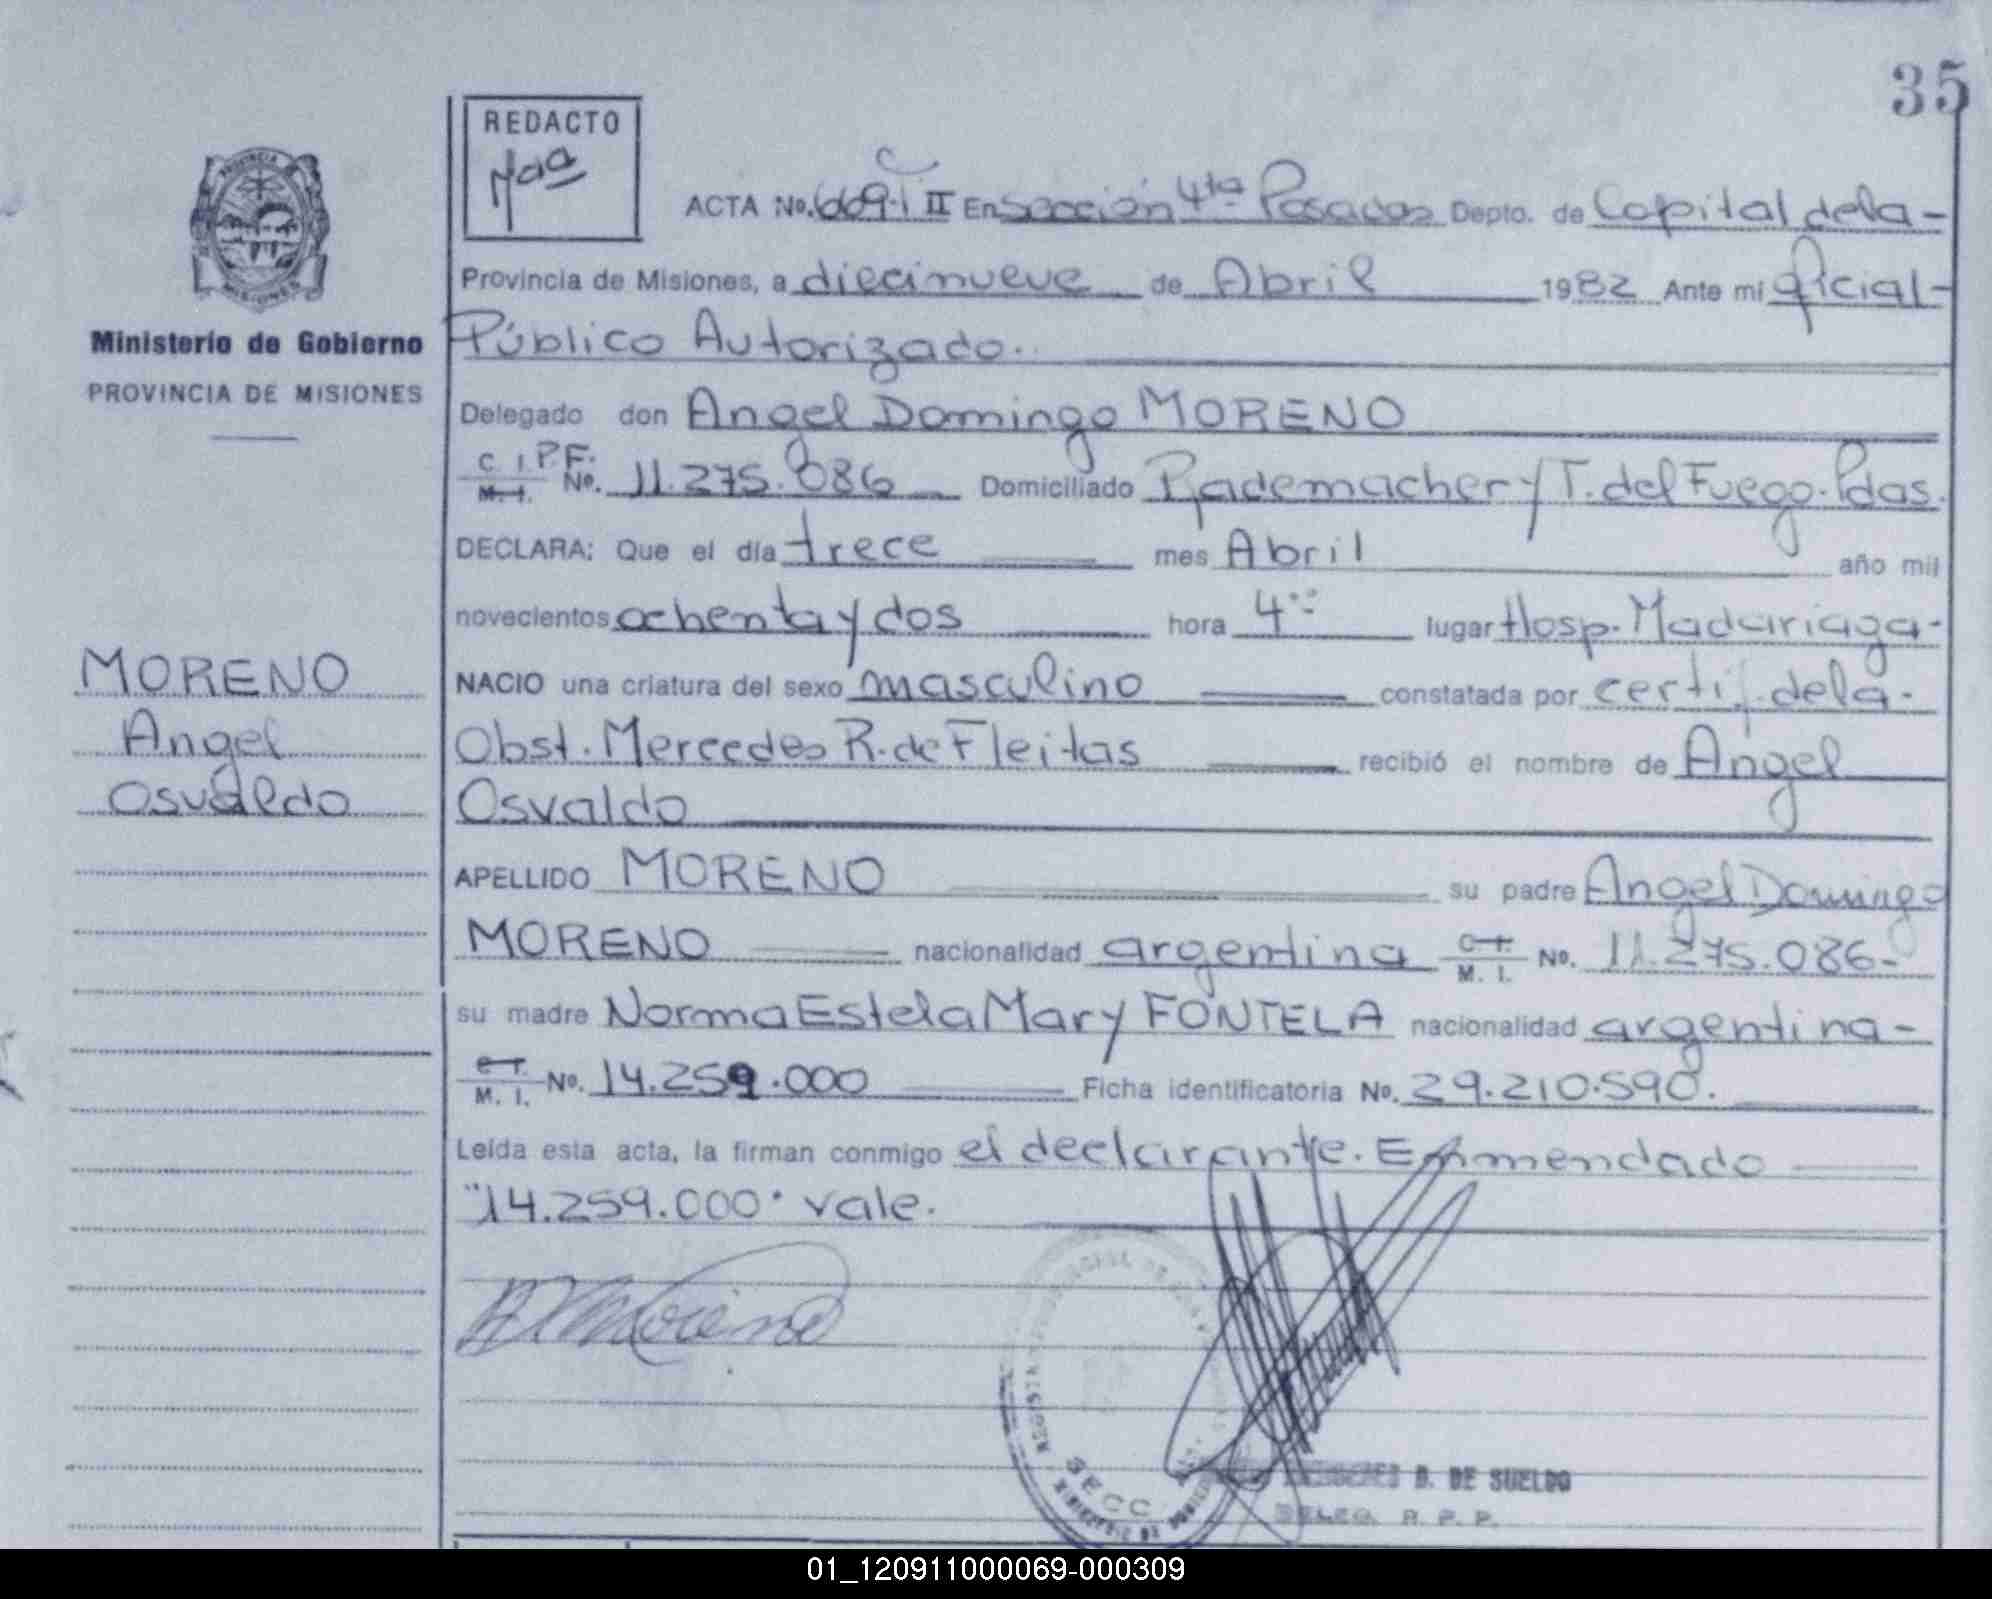 35
REDACTO
PROVINCIA
MISIONES
Ministerio de Gobierno
PROVINCIA DE MISIONES
ACTA No. 669-T II En Sección 4ta Posadas Depto. de Capital de la-
Provincia de Misiones, a diecinueve de Abril 1982 Ante mi oficial-
Público Autorizado.
Delegado don Angel Domingo MORENO
C. I. P.F. M. I. No. 11.275.086 Domiciliado Rademacher y T. del Fuego. Pdas.
DECLARA: Que el día trece mes Abril año mil
novecientos ochenta y dos hora 4 lugar Hosp. Madariaga-
MORENO
Angel
Osvaldo
NACIO una criatura del sexo masculino constatada por certif. de la-
Obst. Mercedes R. de Fleitas recibió el nombre de Angel
Osvaldo
APELLIDO MORENO su padre Angel Domingo
MORENO nacionalidad argentina C. I. M. I. No. 11.275.086-
su madre Norma Estela Mary FONTELA nacionalidad argentina-
C. I. M. I. No. 14.259.000 Ficha identificatoria No. 29.210.590.
Leída esta acta, la firman conmigo el declarante. Enmendado
"14.259.000" vale.
SECC
D. DE SUELDO
DELEG. R. P. P.
01_120911000069-000309